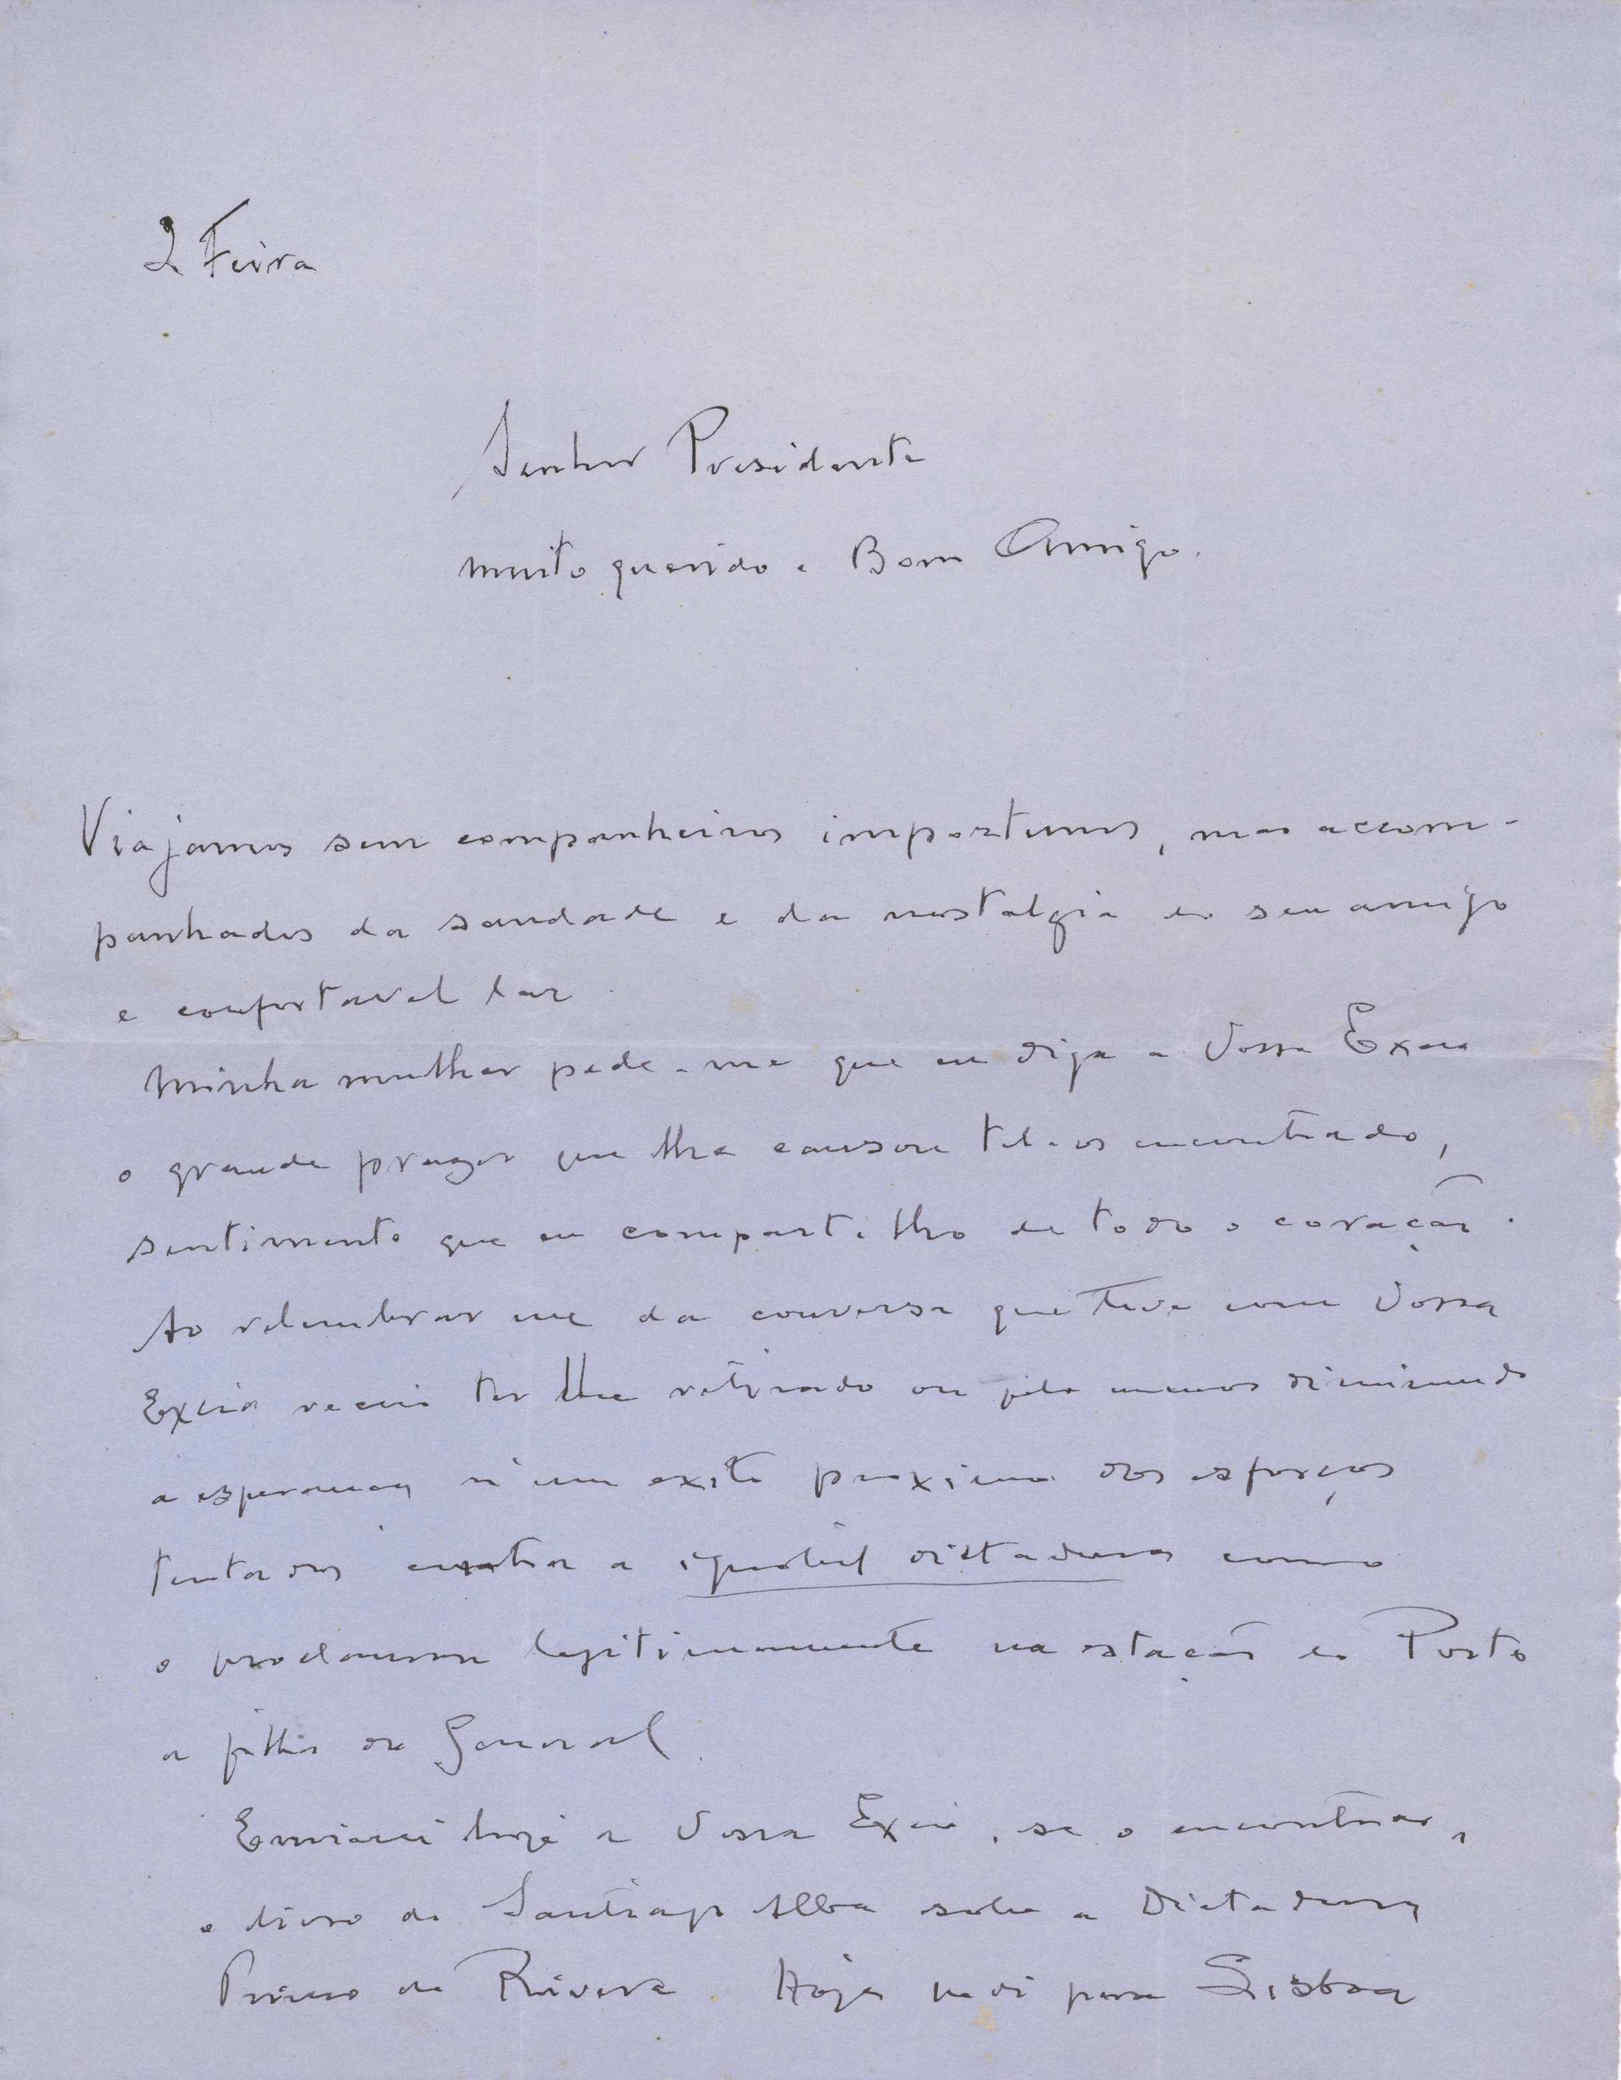 2 Feira
Senhor Presidente
muito querido e Bom Amigo.
Viajamos sem companheiros importunos, mas accom-
panhados da saudade e da nostalgia do seu amigo
e confortavel lar.
Minha mulher pede-me que eu diga a Vossa Excia
o grande prazer que lhe causou tel-os encontrado,
sentimento que eu compartilho de todo o coração.
Ao relembrar me da conversa que tive com Vossa
Excia receio ter lhe retirado ou pelo menos diminuido
a esperança n'um exito proximo dos esforços
tentados contra a ignobil dictadura como
o proclamou legitimamente na estação do Porto
a filha do General.
Enviarei hoje a Vossa Excia, se o encontrar,
o livro de Santiago Alba sobre a Dictadura
Primo de Rivera. Hoje pedi para Lisboa